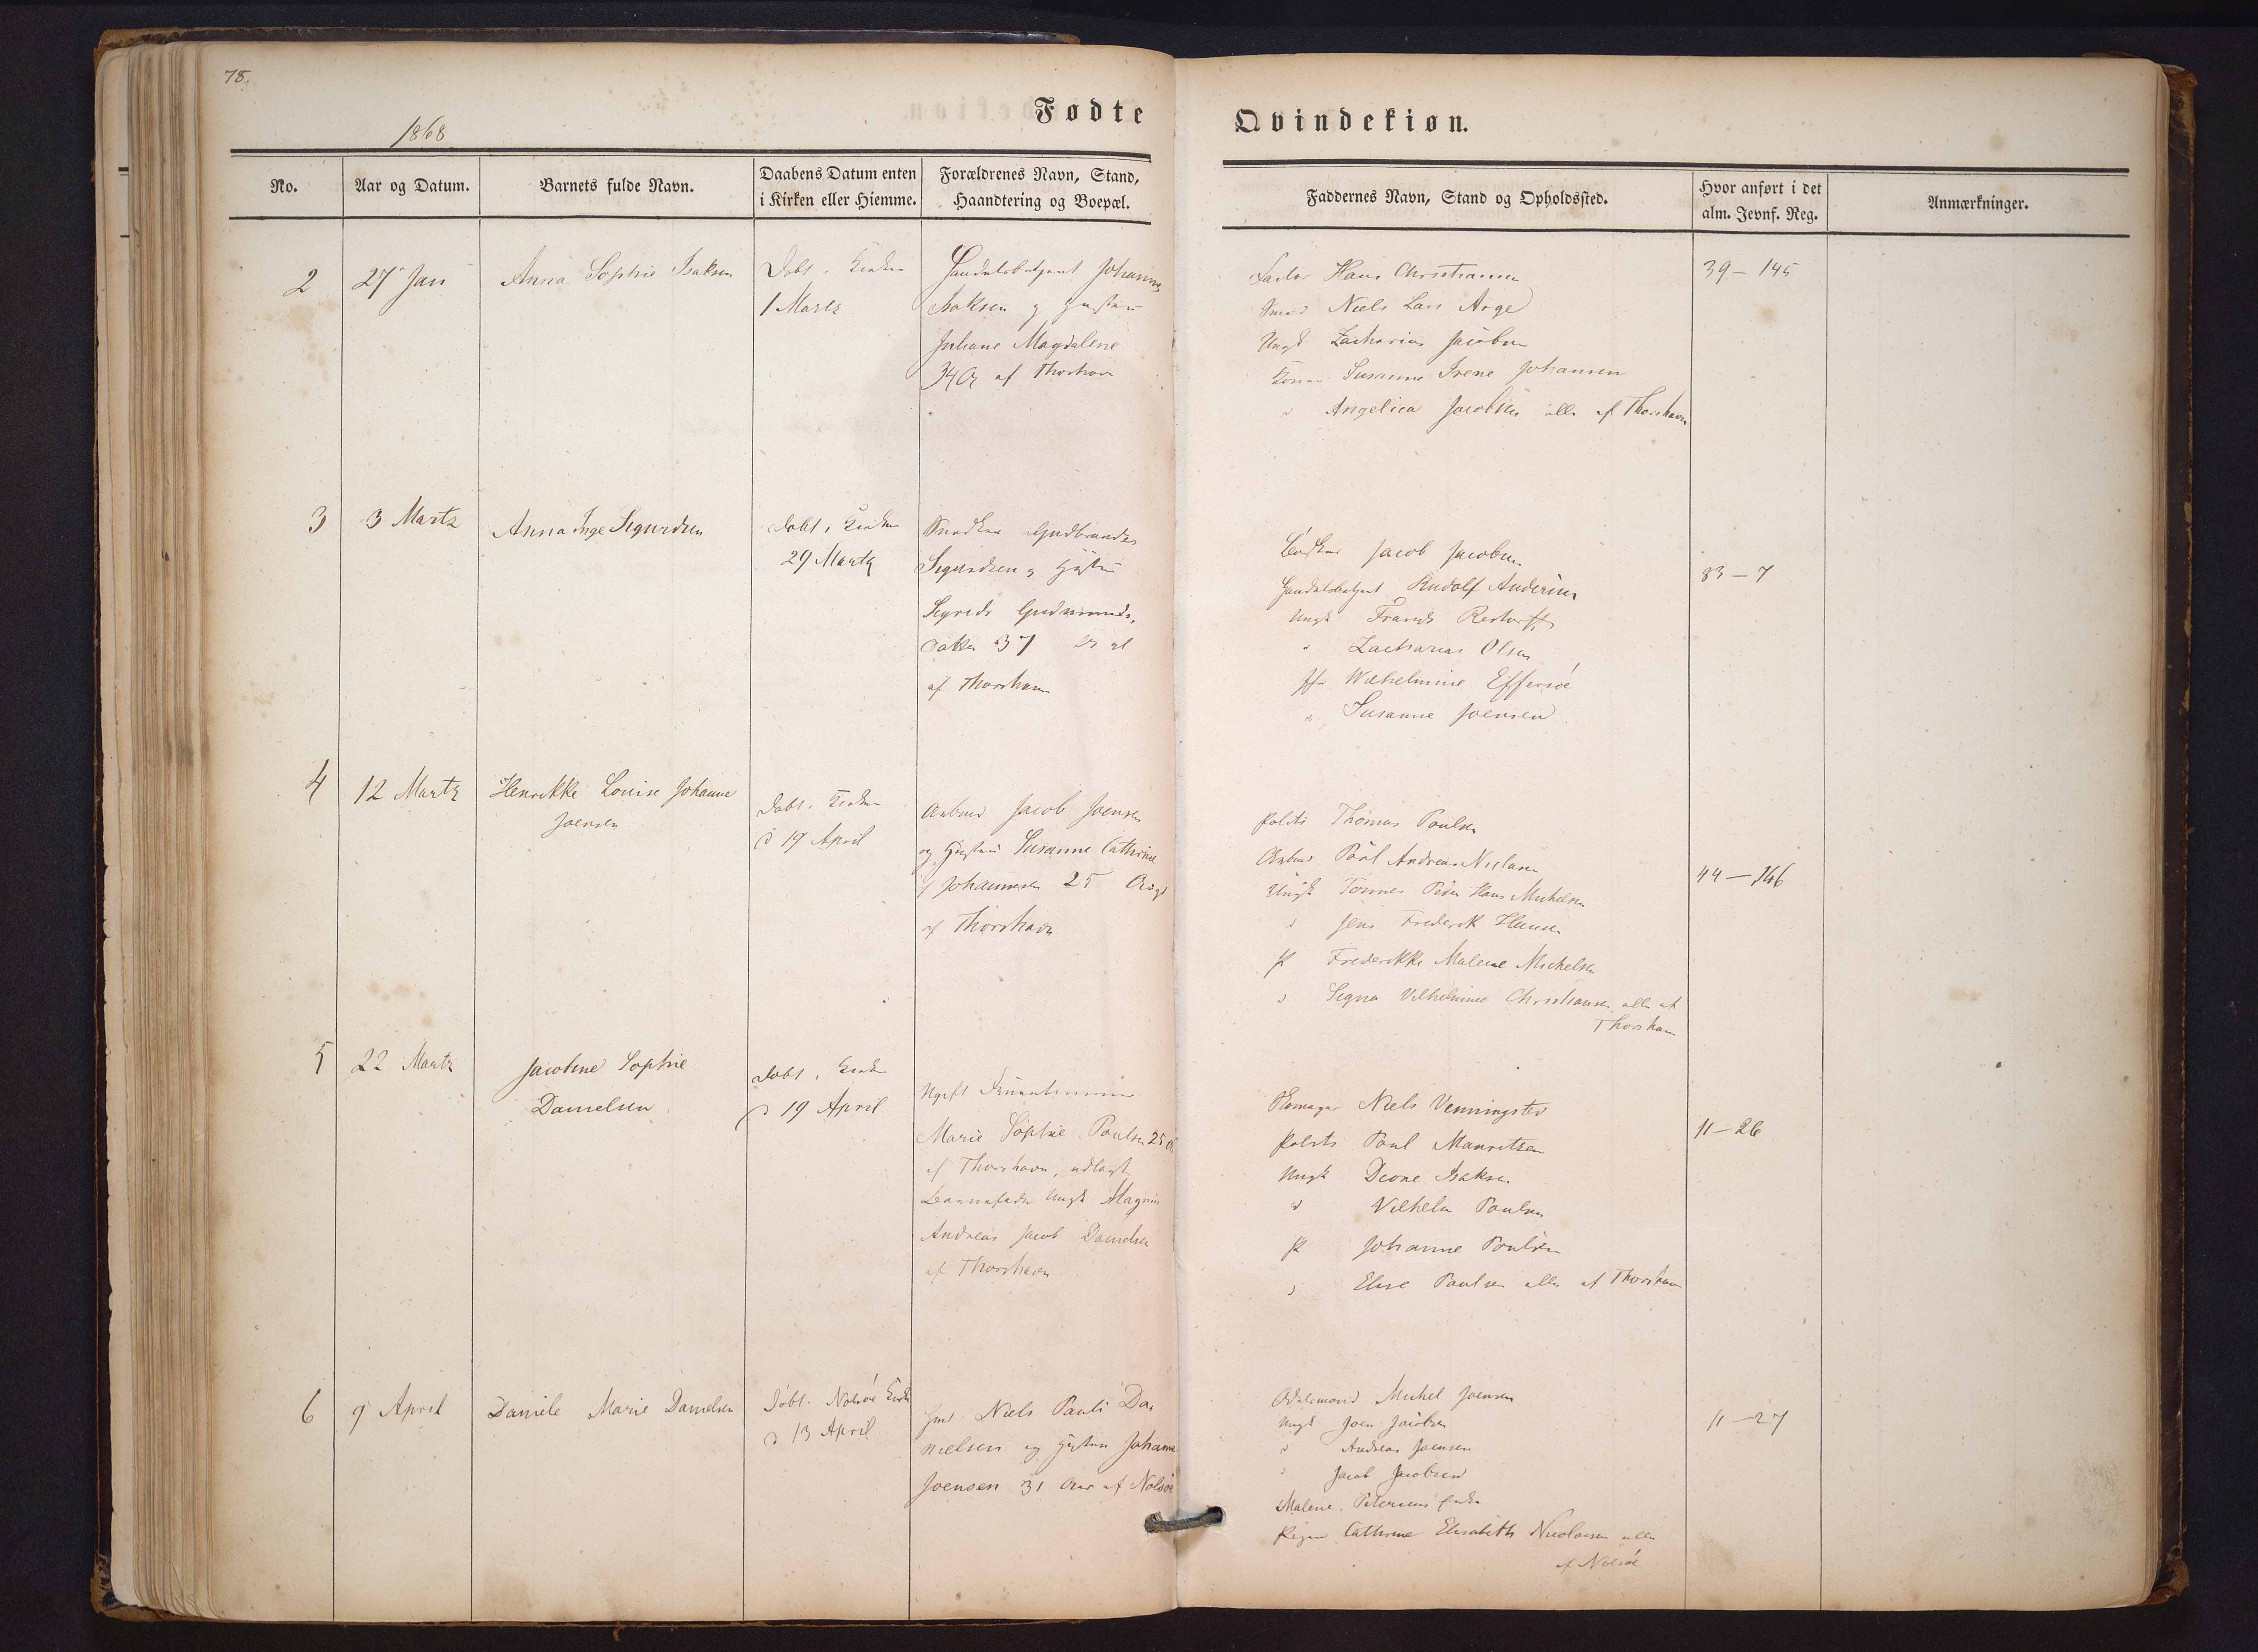 78.
Fødte
Qvindekiøn.
1868
No.
Aar og Datum.
Barnets fulde Navn.
Daabens Datum enten
i Kirken eller Hiemme.
Forældrenes Navn, Stand,
Haandtering og Boepæl.
Faddernes Navn, Stand og Opholdssted.
Hvor anført i det
alm. Jevnf. Reg.
Anmærkninger.
2
27 Jan
Anna Sophie Isaksen
Døbt i Kirken
1 Martz
Handelsbetjent Johannes
Isaksen og Hustru
Juliane Magdalene
34 Ar af Thorshavn
Hans Christiansen
Niels Lars Arge
Ungk Zacharias Jacobsen
Konen Susanne Irene Johansen
" Angelica Jacobsen alle af Thorshavn
39 – 145
3
3 Martz
Anna Inge Sigurdsen
døbt i Kirken
29 Martz
Snedker Gudbrandur
Sigurdsen og Hustru
Sigridr Gudmunds-
datter 37
af Thorshavn
Bødker Jacob Jacobsen
Handelsbetjent Rudolf Andersen
Ungk Frands Restorff
" Zacharias Olsen
Wilhelmine Effersøe
" Susanne Joensen
83 – 7
4
12 Martz
Henrikke Louise Johanne
Joensen
Døbt i Kirken
d 19 April
Arbmd Jacob Joensen
og Hustru Susanne Cathrine
f Johannesen 25 Aar
af Thorshavn
Politi Thomas Poulsen
Arbmd Poul Andreas Nielsen
Ungk Tønnes Peder Hans Michelsen
" Jens Frederik Hansen
P Frederikke Malene Michelsen
" Signa Vilhelmine Christiansen, alle af
Thorshavn
44 – 166
5
22 Martz
Jacobine Sophie
Danielsen
døbt i Kirken
d 19 April
Ugift
Marie Sophie Poulsen 25
af Thorshavn, udlagt
Barnefader Ungk Magnus
Andreas Jacob Danielsen
af Thorshavn
Skomager Niels Venningsted
Politi Poul Mauritzen
Ungk Dione Isaksen
" Vilhelm Poulsen
P Johanne Poulsen
" Elise Poulsen alle af Thorshavn
11 – 26
6
9 April
Daniele Marie Danielsen
Døbt i Nolsøe Kirke
d 13 April
Niels Pauli Da-
nielsen og Hustru Johanne
Joensen 31 Aar af Nolsøe
Odelsmand Michel Joensen
Ungk Joen Jacobsen
" Andreas Joensen
" Jacob Jacobsen
Malene Petersens
Pigen Cathrine Elisabeth Nicolaisen alle
af Nolsøe
11 – 27